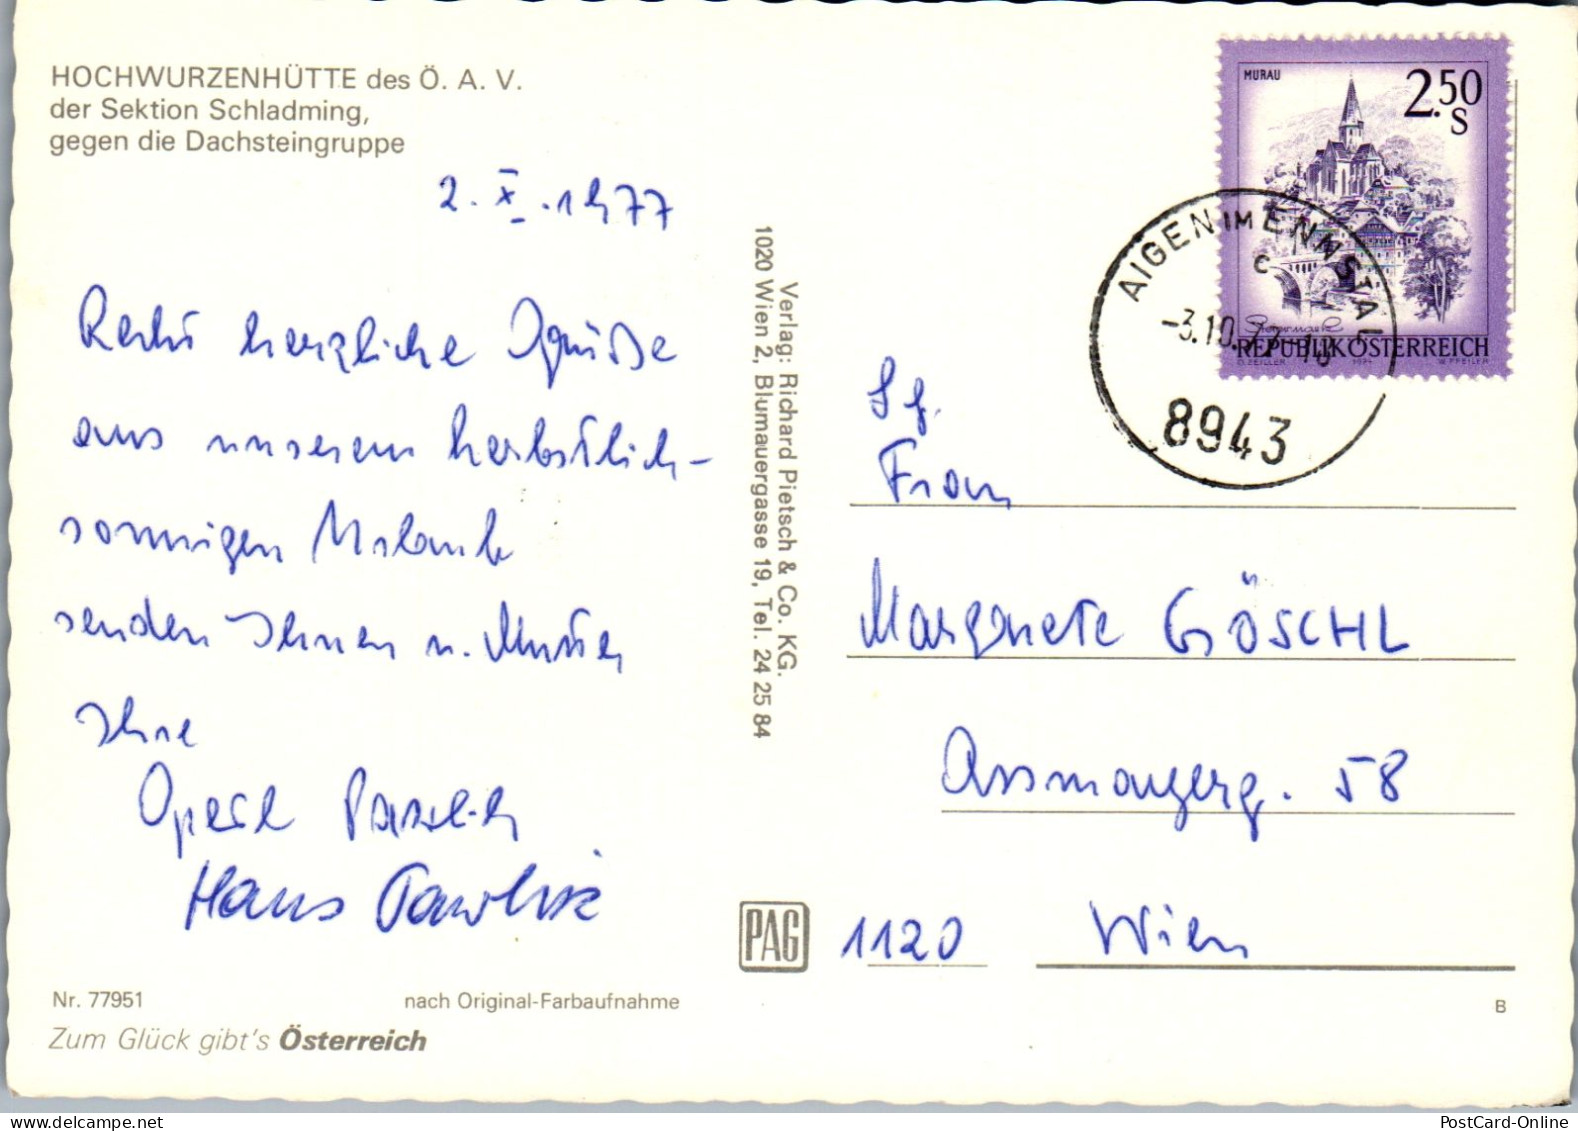 HOCHWURZENHÜTTE des Ö. A. V.
der Sektion Schladming,
gegen die Dachsteingruppe
2. X. 1977
Recht herzliche Grüße
aus unserem herbstlich-
sonnigen Urlaub
senden Ihnen u. Mutter
Ihre
Hans Pawlik
Nr. 77951
nach Original-Farbaufnahme
Zum Glück gibt's Österreich
Verlag: Richard Pietsch & Co. KG.
1020 Wien 2, Blumauergasse 19, Tel. 24 25 84
PAG
MURAU
2.50
S
REPUBLIK ÖSTERREICH
1974
W. PFEILER
AIGEN IM ENNSTAL
c
-3.10.
8943
Sg.
Frau
Margarete GÖSCHL
Assmayerg. 58
1120 Wien
B
PostCard-Online